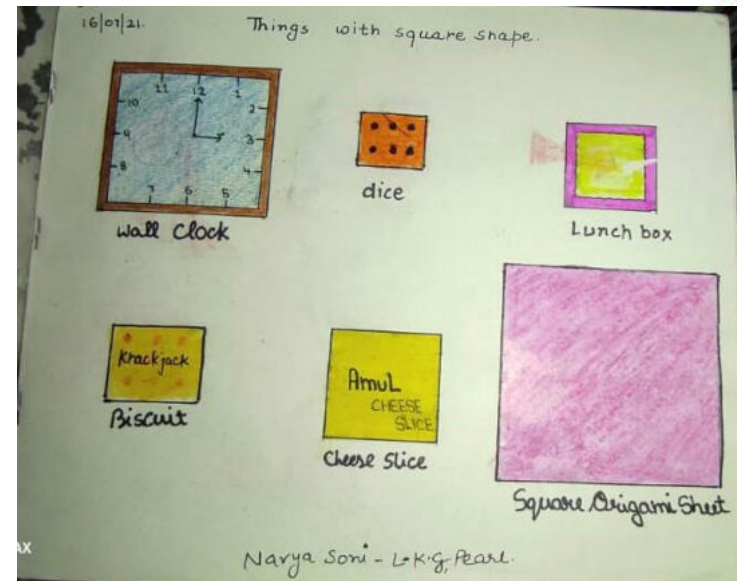 16/07/21.
Things with square shape.
11 12 1
10 2
9 3
8 4
7 6 5
Wall Clock
dice
Lunch box
Krackjack
Biscuit
Amul
CHEESE
SLICE
Cheese Slice
Square Origami Sheet
Navya Soni - L.K.G, Pearl.
AX